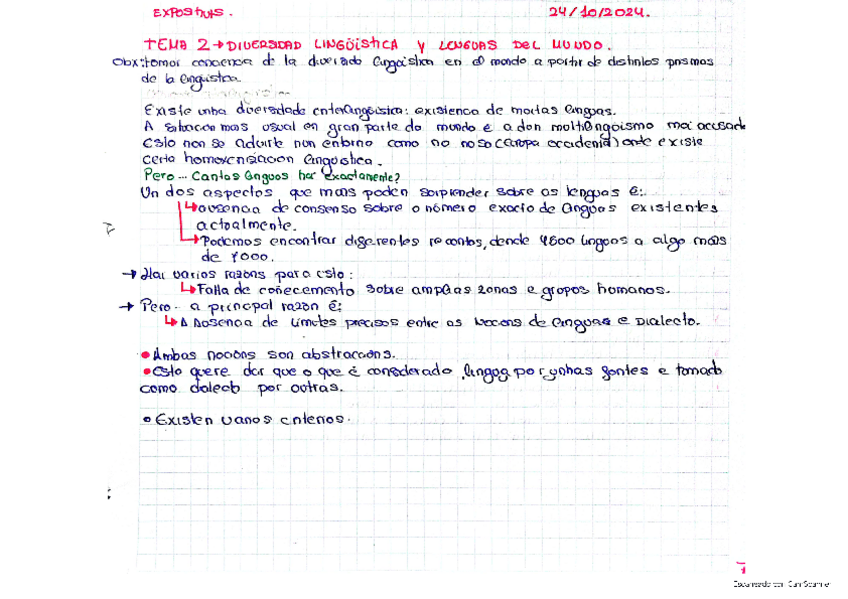 EXPOSITIVAS.
24/10/2024.
TEMA 2 → DIVERSIDAD LINGÜÍSTICA Y LENGUAS DEL MUNDO.
Obx: tomar conciencia de la diversidade lingüística en el mundo a partir de distintos prismas
de la lingüística.
Existe unha diversidade interlingüística: existencia de moitas linguas.
A situación mais usual en gran parte do mundo é a dun multilingüismo moi acusado
Esto non se advirte nun entorno como no noso (europa occidental) onte existe
certa homoxeneización lingüística.
Pero... Cantas linguas hai exactamente?
Un dos aspectos que mais poden sorprender sobre as lenguas é:
↳ ausencia de consenso sobre o número exacto de linguas existentes
actualmente.
↳ Podemos encontrar diferentes recontos, dende 4500 linguas a algo más
de 7000.
→ Hai varios razóns para esto:
↳ Falta de coñecemento sobre amplias zonas e grupos humanos.
→ Pero.. a principal razón é:
↳ A Ausencia de límites precisos entre as nocións de linguas e Dialecto.
• Ambas nocións son abstraccións.
• Esto quere dcir que o que é considerado lingua por unhas fontes e tomado
como dialecto por outras.
• Existen varios criterios.
Escaneado con CamScanner